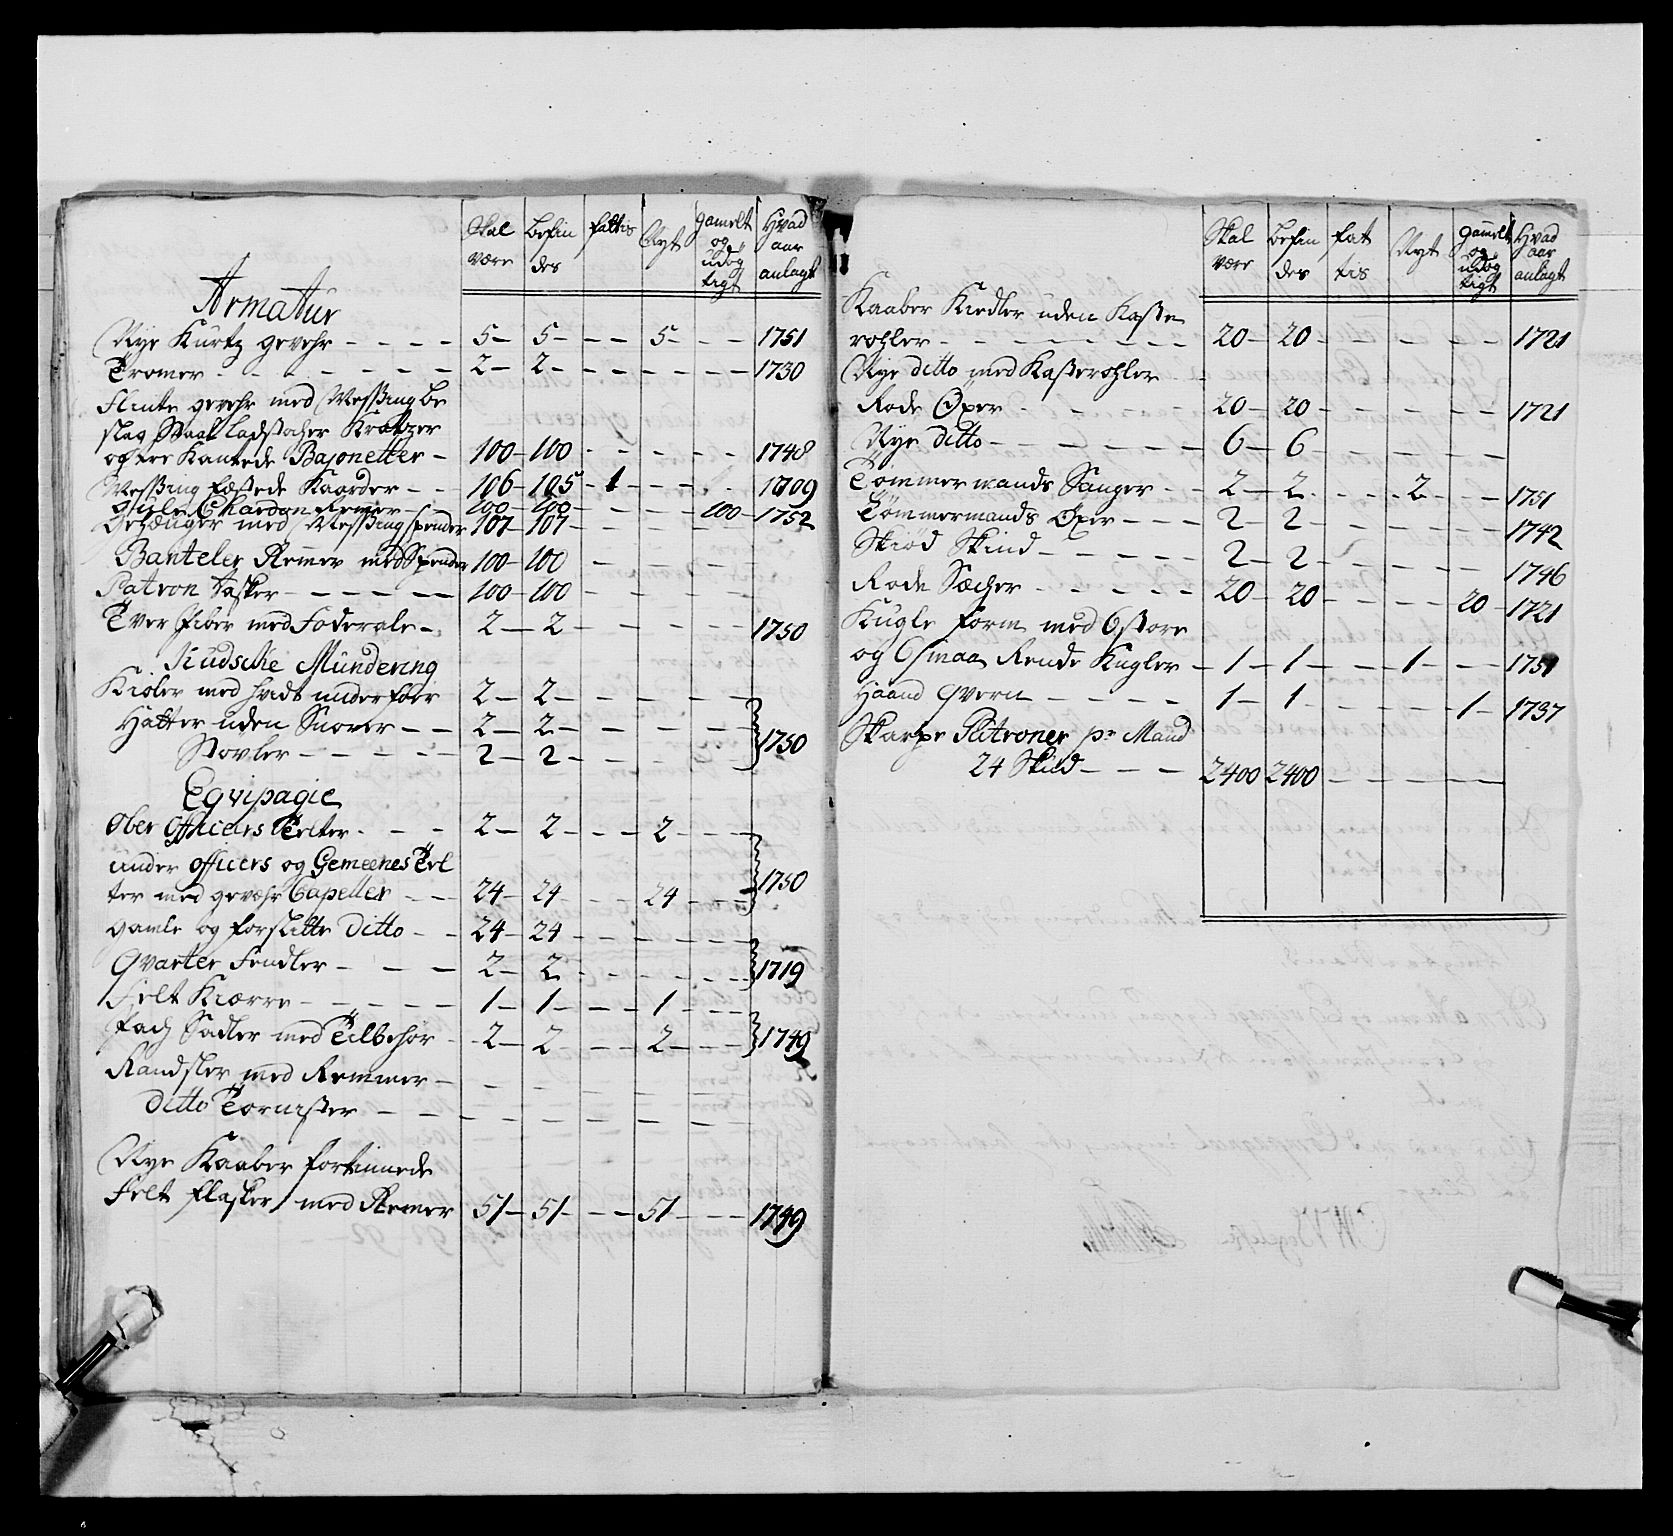 Skal være | befin des | fattis | Nyt | gamelt og udög tigt | Hvad aar anlagt
Armatur
Nye Kurtz gevehr - - - - 5 - 5 - - - 5 - - - 1751
Tromer - - - - 2 - 2 - - - - - - 1730
Flinte gevehr med Messing be
slag Staal ladstocher Kratzer
og tre Kantede Bajonetter - 100 - 100 - - - - - 1748
Messing fæstede Kaarder - - 106 - 105 - 1 - - - 1709
Chardon Remer - 100 - 100 - - - - 100 -
Gehænger med Messing spender 107 - 107 - - - - 1752
Banteler Remer med Spender 100 - 100 - - - -
Patron tasker - - - - - 100 - 100 - - - -
Tver Piber med Foderale - 2 - 2 - - - - 1750
Kudsche Mundering
Kioler med hvidt underfoer 2 - 2 - - - -
Hatter uden Snorer - - 2 - 2 - - - - 1750
Stovler - - - - - 2 - 2 - - - -
Eqvipagie
Ober Officiers Telter - - - 2 - 2 - - - 2 - - -
under officers og Gemeenes Tel
ter med gevæhr Capeller - - 24 - 24 - - - 24 - - - 1750
gamle og forslitte Ditto - - 24 - 24 - - - - -
Qvarter Fendler - - - 2 - 2 - - - - - 1719
Felt Kiærre - - - - - 1 - 1 - - - 1 - - -
Pach Sadler med Tilbehör - 2 - 2 - - - 2 - - - 1749
Randsler med Remmer - - - - - - -
Ditto Tornister - - - - - - - -
Nye Kaaber fortinnede
Felt flasker med Remer 51 - 51 - - - 51 - - - 1749
Skal være | befin des | fat tis | Nyt | gamelt og udög tigt | Hvad aar anlagt
Kaaber Kiedler uden Kaße
rohler - - - - - - - 20 - 20 - - - - - 1721
Nye ditto med Kaßerohler
Rode Öxer - - - - - 20 - 20 - - - - - 1721
Nye ditto - - - - - - 6 - 6 - - - -
Tömmermands Sauger - - 2 - 2 - - - 2 - - - 1751
Tömmermands Öxer - - - 2 - 2 - - - - - 1742
Skiöd Skind - - - - - 2 - 2 - - - - - 1746
Rode Sæcher - - - - - 20 - 20 - - - - 20 - 1721
Kugle form med 6 store
og 6 smaa Rende Kugler - 1 - 1 - - - 1 - - - 1751
Haand Qvern - - - - 1 - 1 - - - - 1 - 1737
Skarpe Patroner pr Mand
24 Skud - - - 2400 2400 - - - -